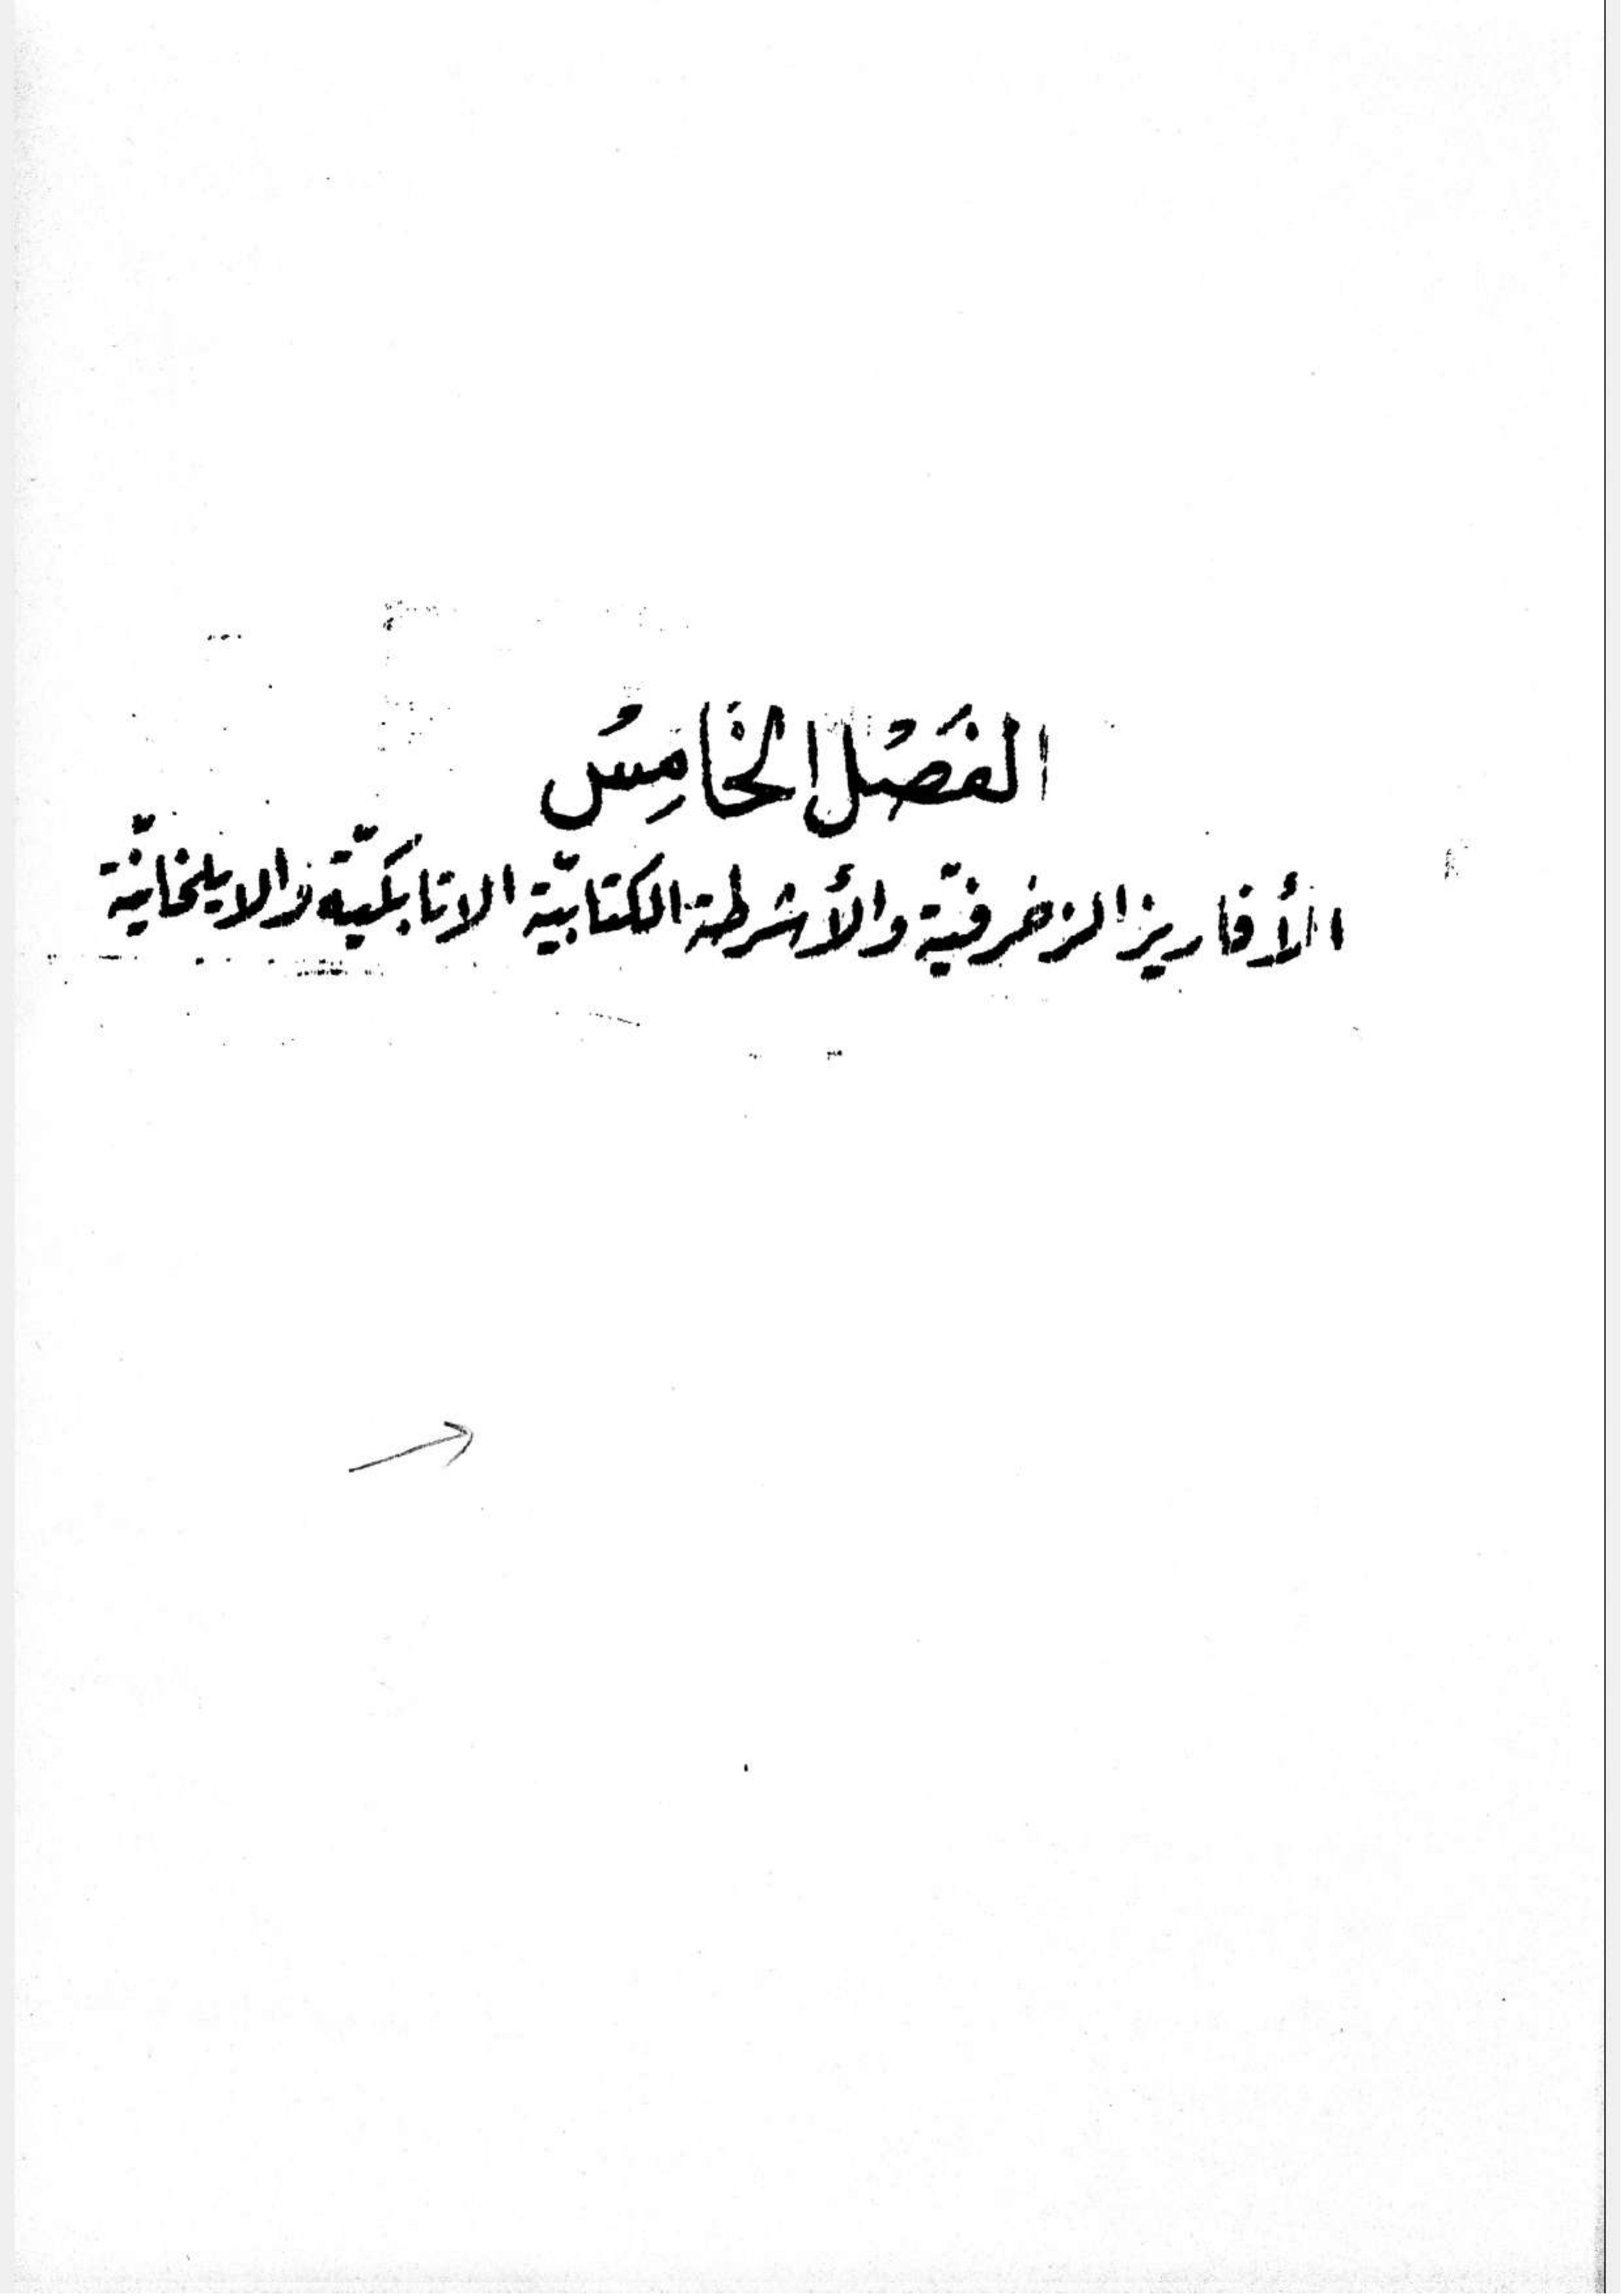 الفَصْل الخَامِسُ
الأفاريز الزخرفيّة والأشرطة الكتابيّة الاتابكيّة والايلخانيّة